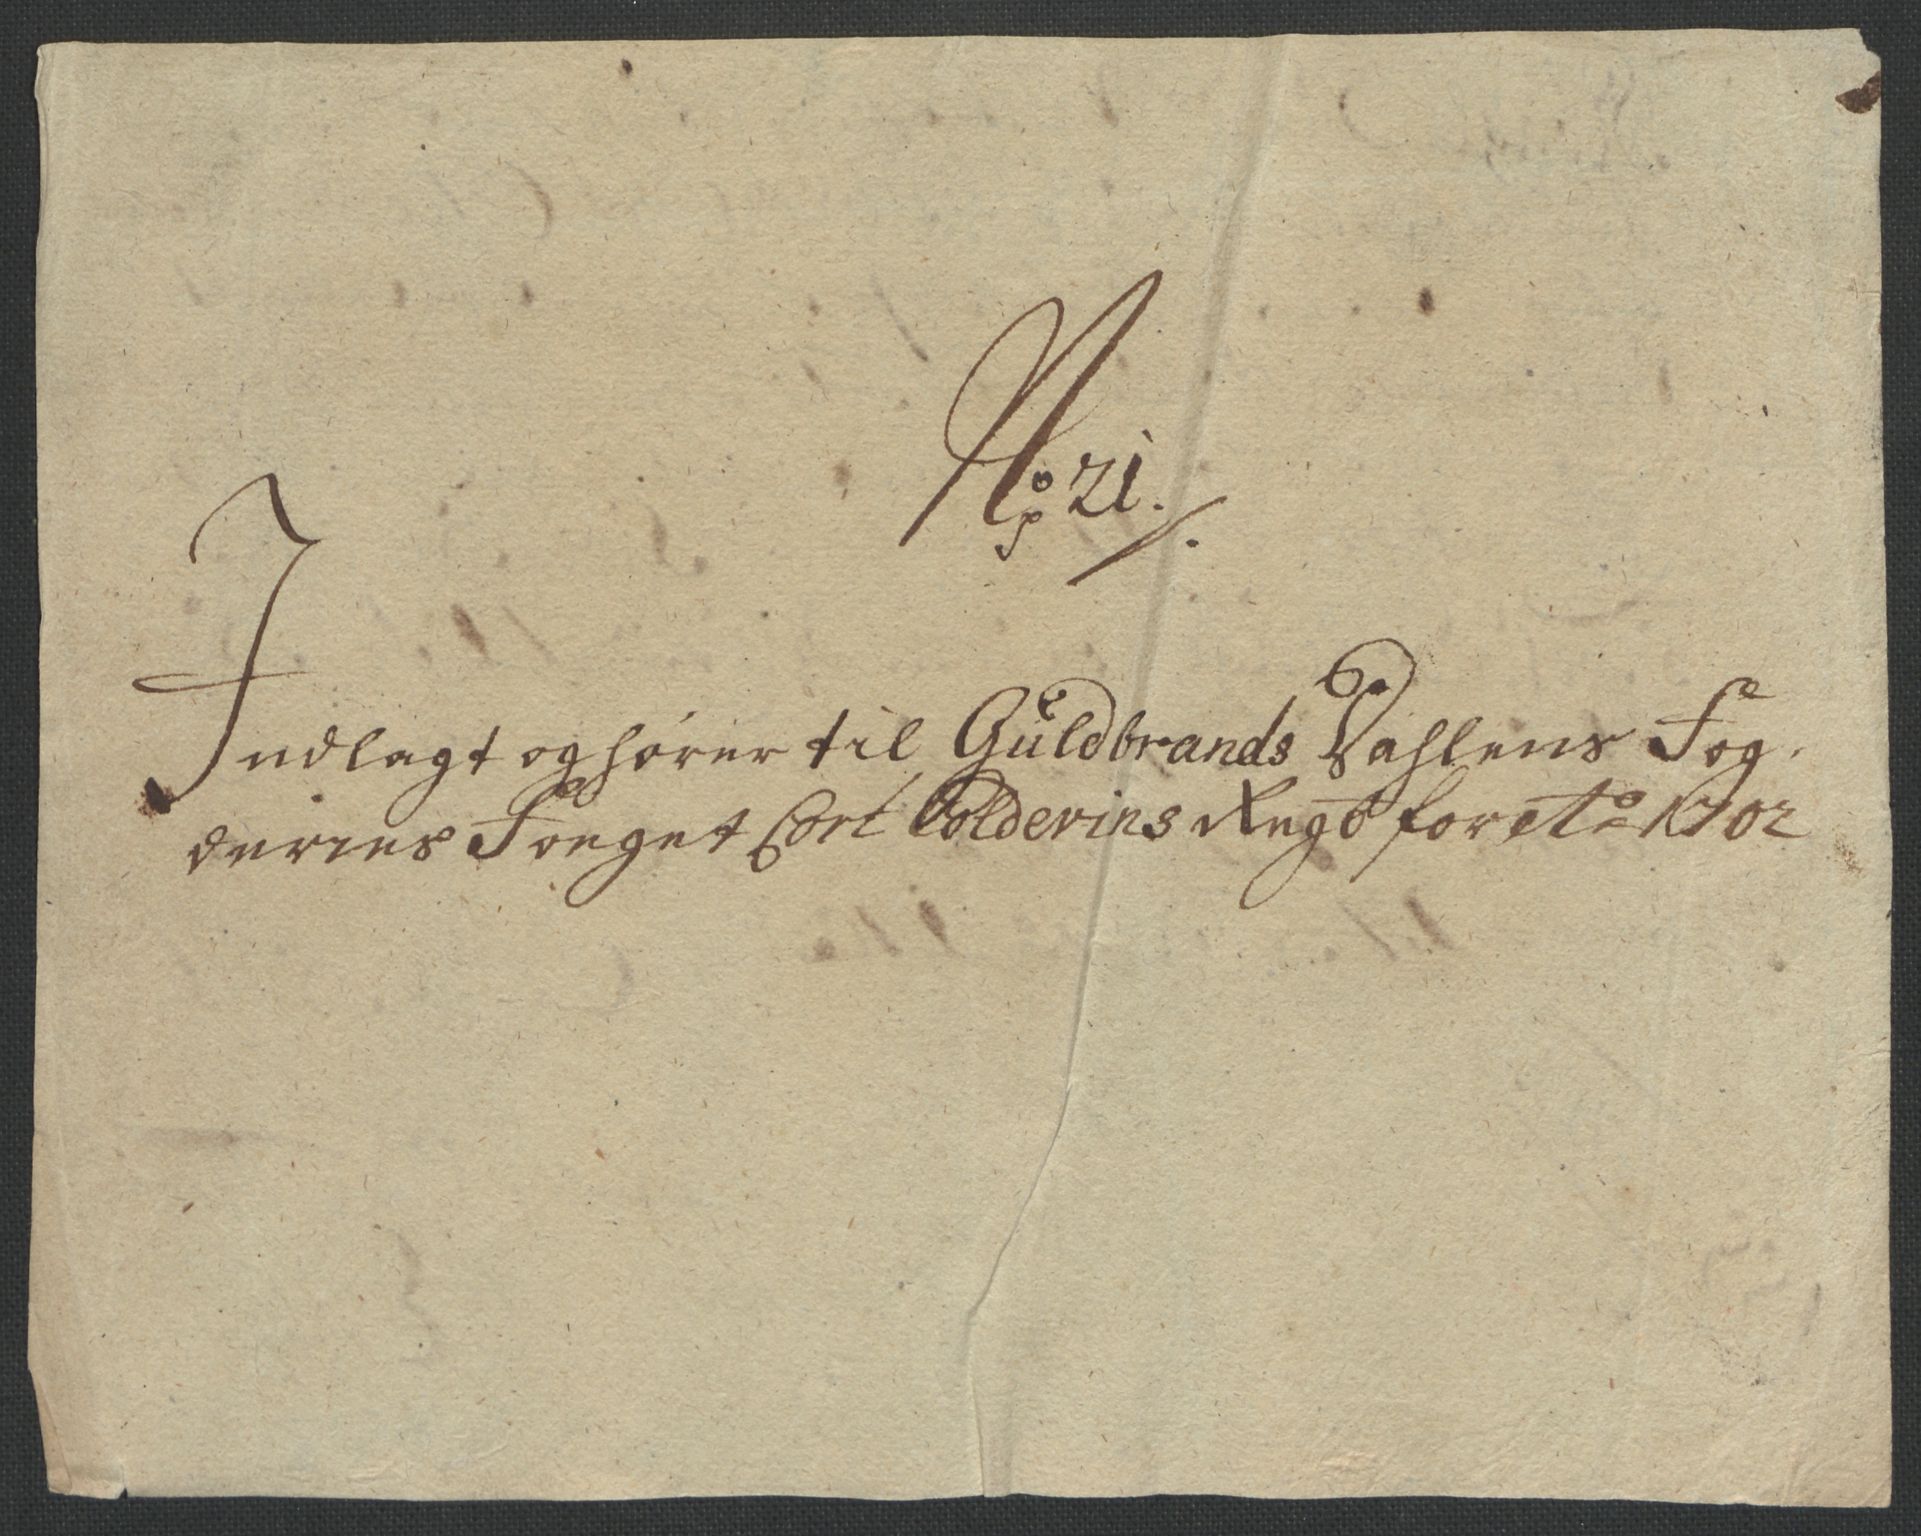 No 21.
Indlagt og hører til Guldbrands Dahlens Fog-
deries Foeget Cort Colderins Regb for Ao 1702